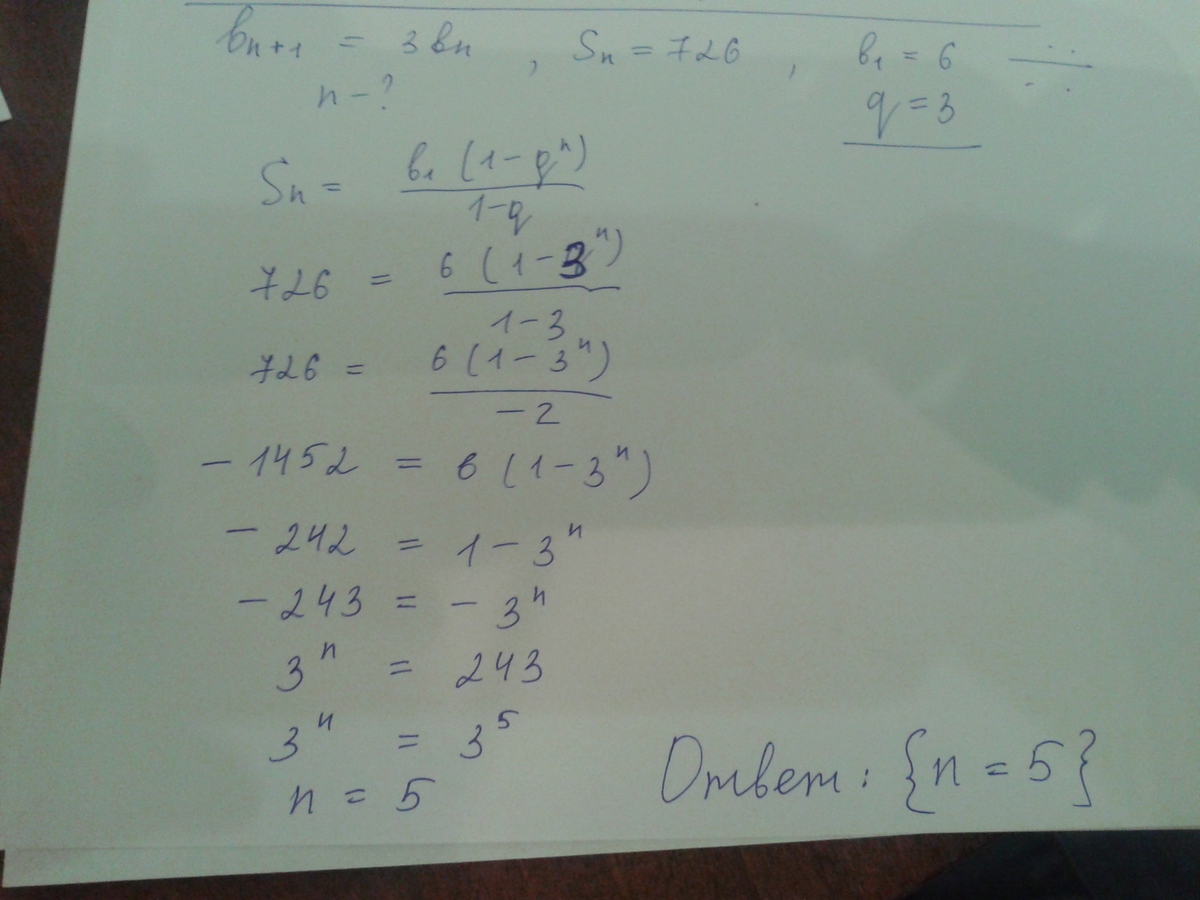 bₙ₊₁ = 3bₙ , Sₙ = 726 , b₁ = 6 ∺
n – ? q = 3
Sₙ = b₁ (1 – qⁿ) / 1 – q
726 = 6 (1 – 3ⁿ) / 1 – 3
726 = 6 (1 – 3ⁿ) / – 2
– 1452 = 6 (1 – 3ⁿ)
– 242 = 1 – 3ⁿ
– 243 = – 3ⁿ
3ⁿ = 243
3ⁿ = 3⁵
n = 5
Ответ: {n = 5}